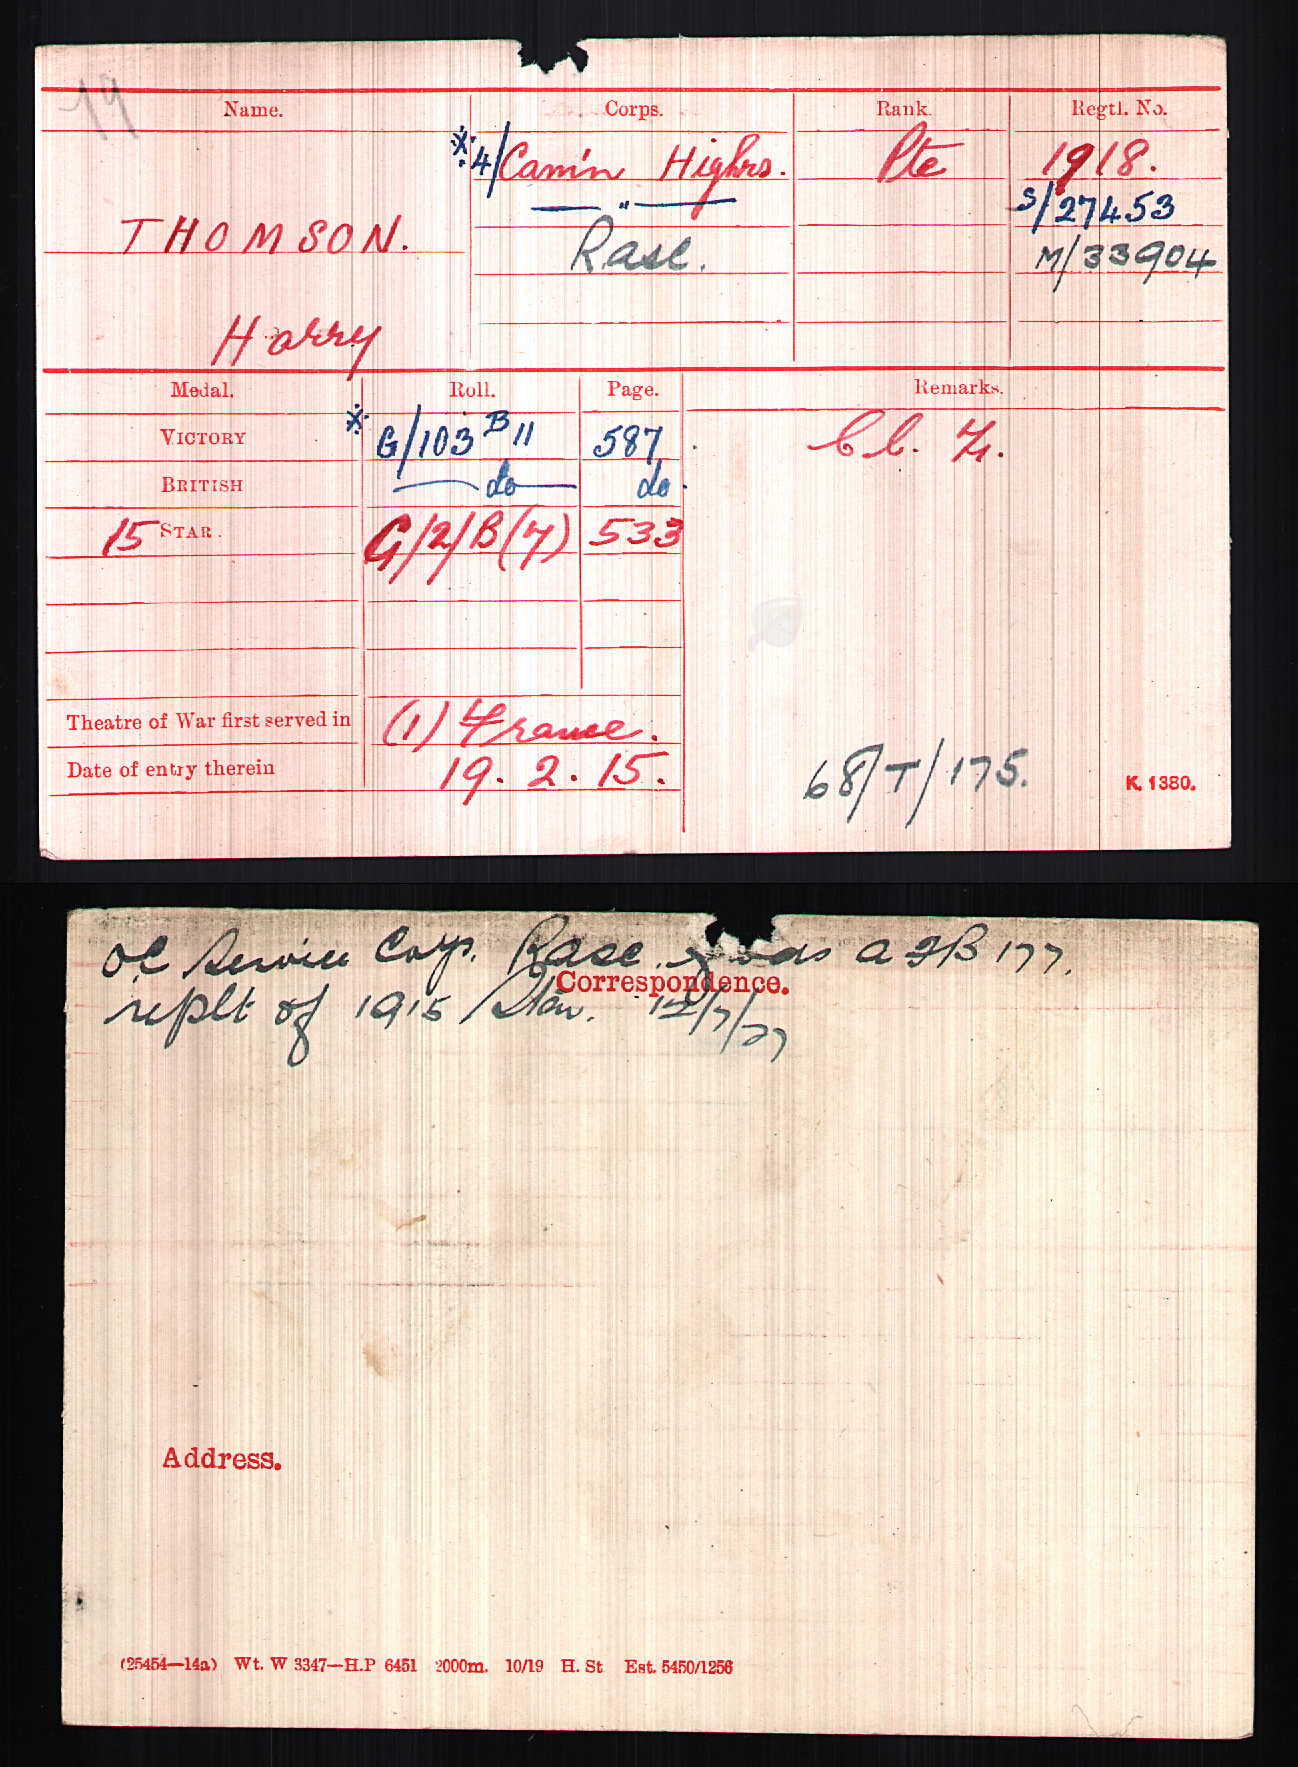 79
Name. Corps. Rank. Regtl. No.
* 4/Cam'n Highrs. Pte 1918.
— " — S/27453
THOMSON. RASC. M/33904
Harry
Medal. Roll. Page. Remarks.
VICTORY * G/103 B 11 587 Cl. Z.
BRITISH — do — do.
15 STAR. G/2/B(7) 533
Theatre of War first served in (1) France.
Date of entry therein 19. 2. 15.
68/T/175. K. 1380.
OC Service Corps. RASC. a 177.
Correspondence.
replt of 1915 Star. 12/7/27
Address.
(25454—14a) Wt. W 3347—H.P 6451 2000m. 10/19 H. St Est. 5450/1256